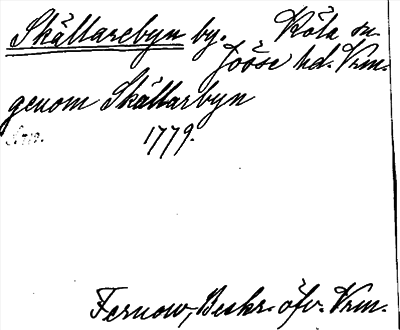 Skållarebyn by. Köla sn.
Jösse hd. Vrm.
genom Skållarbyn
1779.
Fernow, Beskr. öfv. Vrm.